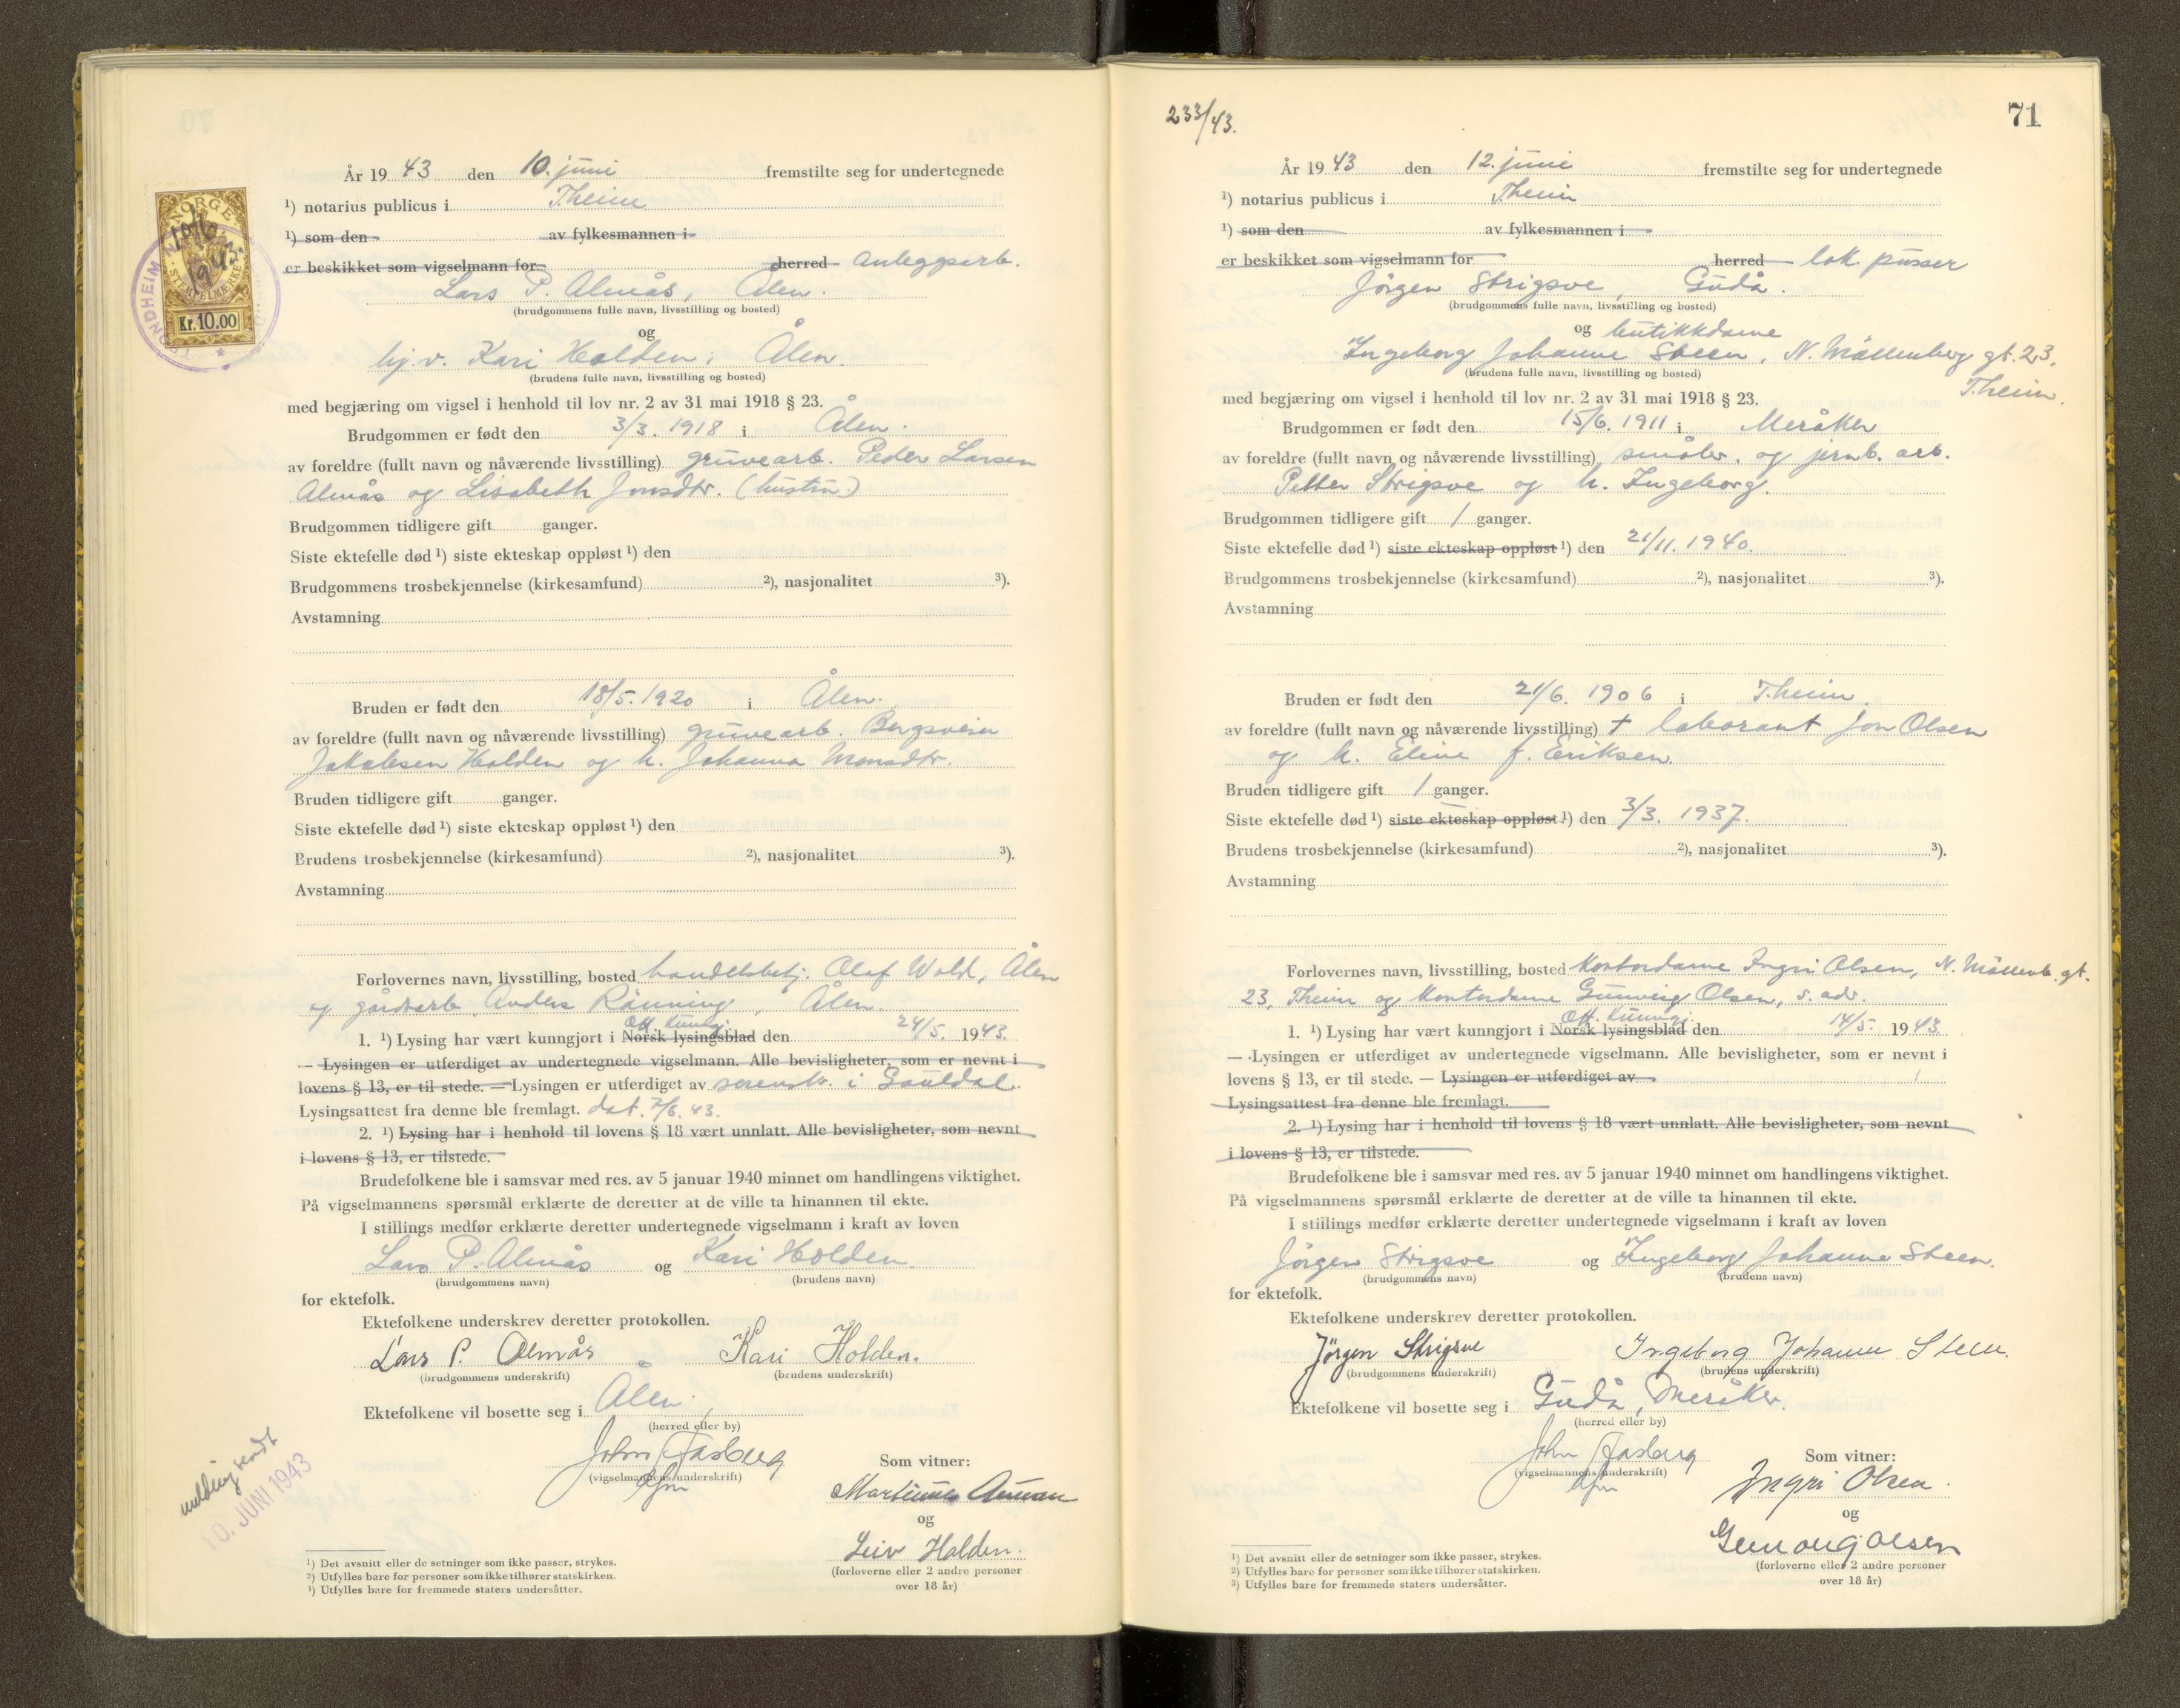 År 1943 den 10. juni fremstilte seg for undertegnede
¹) notarius publicus i Theim
¹) som den av fylkesmannen i
er beskikket som vigselmann for herred anleggsarb.
Lars P. Almås, Ålen.
(brudgommens fulle navn, livsstilling og bosted)
og
hj.v. Kari Holden, Ålen.
(brudens fulle navn, livsstilling og bosted)
med begjæring om vigsel i henhold til lov nr. 2 av 31 mai 1918 § 23.
Brudgommen er født den 3/3. 1918 i Ålen.
av foreldre (fullt navn og nåværende livsstilling) gruvearb. Peder Larsen
Almås og Lisabeth Jonsdtr. (hustru)
Brudgommen tidligere gift ganger.
Siste ektefelle død ¹) siste ekteskap oppløst ¹) den
Brudgommens trosbekjennelse (kirkesamfund) ²), nasjonalitet ³).
Avstamning
Bruden er født den 18/5. 1920 i Ålen.
av foreldre (fullt navn og nåværende livsstilling) gruvearb. Bergsvein
Jakobsen Holden og h. Johanna Monsdtr.
Bruden tidligere gift ganger.
Siste ektefelle død ¹) siste ekteskap oppløst ¹) den
Brudens trosbekjennelse (kirkesamfund) ²), nasjonalitet ³).
Avstamning
Forlovernes navn, livsstilling, bosted handelsbetj. Olaf Wold, Ålen
og gårdarb. Anders Rönning, Ålen.
Off. kunngj.
1. ¹) Lysing har vært kunngjort i Norsk lysingsblad den 24/5. 1943.
— Lysingen er utferdiget av undertegnede vigselmann. Alle bevisligheter, som er nevnt i
lovens § 13, er til stede. — Lysingen er utferdiget av sorenskr. i Gauldal.
Lysingsattest fra denne ble fremlagt. dat. 7/6. 43.
2. ¹) Lysing har i henhold til lovens § 18 vært unnlatt. Alle bevisligheter, som nevnt
i lovens § 13, er tilstede.
Brudefolkene ble i samsvar med res. av 5 januar 1940 minnet om handlingens viktighet.
På vigselmannens spørsmål erklærte de deretter at de ville ta hinannen til ekte.
I stillings medfør erklærte deretter undertegnede vigselmann i kraft av loven
Lars P. Almås og Kari Holden.
(brudgommens navn) (brudens navn)
for ektefolk.
Ektefolkene underskrev deretter protokollen.
Lars P. Almås Kari Holden.
(brudgommens underskrift) (brudens underskrift)
Ektefolkene vil bosette seg i Ålen,
(herred eller by)
John Aasberg
(vigselmannens underskrift)
Som vitner:
Martinus
og
Leiv Holden.
(forloverne eller 2 andre personer
over 18 år)
¹) Det avsnitt eller de setninger som ikke passer, strykes.
²) Utfylles bare for personer som ikke tilhører statskirken.
³) Utfylles bare for fremmede staters undersåtter.
melding sendt
10. JUNI 1943
NORGE
10/6
1943.
STEMPELMERKE
Kr. 10.00
TRONDHEIM
233/43.
71
År 1943 den 12. juni fremstilte seg for undertegnede
¹) notarius publicus i Theim
¹) som den av fylkesmannen i
er beskikket som vigselmann for herred lok. pusser
Jörgen Strigsve, Gudå.
(brudgommens fulle navn, livsstilling og bosted)
og butikkdame
Ingeborg Johanne Steen, N. Möllenberg gt. 23,
Theim.
(brudens fulle navn, livsstilling og bosted)
med begjæring om vigsel i henhold til lov nr. 2 av 31 mai 1918 § 23.
Brudgommen er født den 15/6. 1911 i Meråker
av foreldre (fullt navn og nåværende livsstilling) småbr. og jernb. arb.
Petter Strigsve og h. Ingeborg.
Brudgommen tidligere gift 1 ganger.
Siste ektefelle død ¹) siste ekteskap oppløst ¹) den 21/11. 1940.
Brudgommens trosbekjennelse (kirkesamfund) ²), nasjonalitet ³).
Avstamning
Bruden er født den 21/6. 1906 i Theim.
av foreldre (fullt navn og nåværende livsstilling) + laborant Jon Olsen
og h. Eline f. Eriksen.
Bruden tidligere gift 1 ganger.
Siste ektefelle død ¹) siste ekteskap oppløst ¹) den 3/3. 1937.
Brudens trosbekjennelse (kirkesamfund) ²), nasjonalitet ³).
Avstamning
Forlovernes navn, livsstilling, bosted Kontordame Ingri Olsen, N. Möllenb. gt.
23, Theim og kontordame Gunveig Olsen, s. adr.
Off. kunngj.
1. ¹) Lysing har vært kunngjort i Norsk lysingsblad den 14/5. 1943
— Lysingen er utferdiget av undertegnede vigselmann. Alle bevisligheter, som er nevnt i
lovens § 13, er til stede. — Lysingen er utferdiget av
Lysingsattest fra denne ble fremlagt.
2. ¹) Lysing har i henhold til lovens § 18 vært unnlatt. Alle bevisligheter, som nevnt
i lovens § 13, er tilstede.
Brudefolkene ble i samsvar med res. av 5 januar 1940 minnet om handlingens viktighet.
På vigselmannens spørsmål erklærte de deretter at de ville ta hinannen til ekte.
I stillings medfør erklærte deretter undertegnede vigselmann i kraft av loven
Jörgen Strigsve og Ingeborg Johanne Steen.
(brudgommens navn) (brudens navn)
for ektefolk.
Ektefolkene underskrev deretter protokollen.
Jörgen Strigsve Ingeborg Johanne Steen.
(brudgommens underskrift) (brudens underskrift)
Ektefolkene vil bosette seg i Gudå, Meråker.
(herred eller by)
John Aasberg
(vigselmannens underskrift)
Som vitner:
Ingri Olsen.
og
Gunveig Olsen
(forloverne eller 2 andre personer
over 18 år)
¹) Det avsnitt eller de setninger som ikke passer, strykes.
²) Utfylles bare for personer som ikke tilhører statskirken.
³) Utfylles bare for fremmede staters undersåtter.